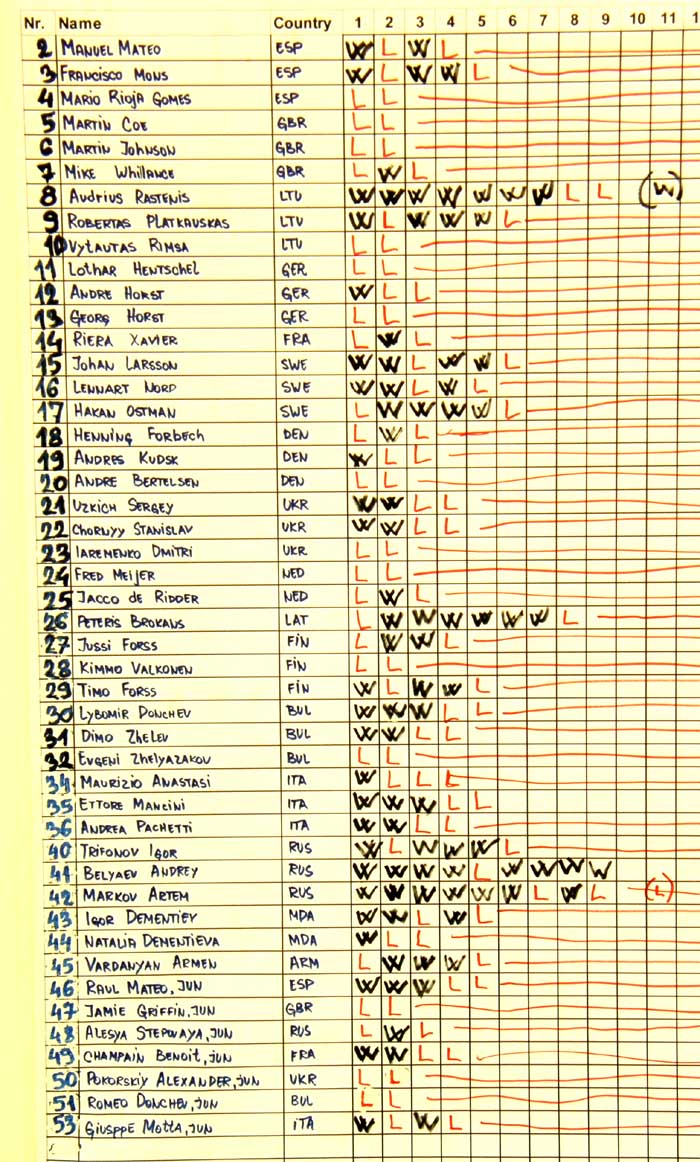 Nr. Name Country 1 2 3 4 5 6 7 8 9 10 11 1
2 MANUEL MATEO ESP W L W L
3 FRANCISCO MONS ESP W L W W L
4 MARIO RIOJA GOMES ESP L L
5 MARTIN COE GBR L L
6 MARTIN JOHNSON GBR L L
7 MIKE WHILLANCE GBR L W L
8 AUDRIUS RASTENIS LTU W W W W W W W L L (W)
9 ROBERTAS PLATKAUSKAS LTU W L W W W L
10 VYTAUTAS RIMSA LTU L L
11 LOTHAR HENTSCHEL GER L L
12 ANDRE HORST GER W L L
13 GEORG HORST GER L L
14 RIERA XAVIER FRA L W L
15 JOHAN LARSSON SWE W W L W W L
16 LENNART NORD SWE W W L W L
17 HAKAN OSTMAN SWE L W W W W L
18 HENNING FORBECH DEN L W L
19 ANDRES KUDSK DEN W L L
20 ANDRE BERTELSEN DEN L L
21 UZKICH SERGEY UKR W W L L
22 CHORNYY STANISLAV UKR W W L L
23 IAREMENKO DMITRI UKR L L
24 FRED MEIJER NED L L
25 JACCO de RIDDER NED L W L
26 PETERIS BROKANS LAT L W W W W W W L
27 JUSSI FORSS FIN L W W L
28 KIMMO VALKONEN FIN L L
29 TIMO FORSS FIN W L W W L
30 LYBOMIR DONCHEV BUL W W W L L
31 DIMO ZHELEV BUL W W L L
32 EVGENI ZHELYAZAKOV BUL L L
34 MAURIZIO ANASTASI ITA W L L L
35 ETTORE MANCINI ITA W W W L L
36 ANDREA PACHETTI ITA W W L L
40 TRIFONOV IGOR RUS W L W W W L
41 BELYAEV ANDREY RUS W W W W L W W W W
42 MARKOV ARTEM RUS W W W W W W L W L (L)
43 IGOR DEMENTIEV MDA W W L W L
44 NATALIA DEMENTIEVA MDA W L L
45 VARDANYAN ARMEN ARM L W W W L
46 RAUL MATEO, JUN ESP W W W L L
47 JAMIE GRIFFIN, JUN GBR L L
48 ALESYA STEPNAYA, JUN RUS L W L
49 CHAMPAIN BENOIT, JUN FRA W W L L
50 POKORSKIY ALEXANDER, JUN UKR L L
51 ROMEO DONCHEV, JUN BUL L L
53 GIUSPPE MOTTA, JUN ITA W L W L